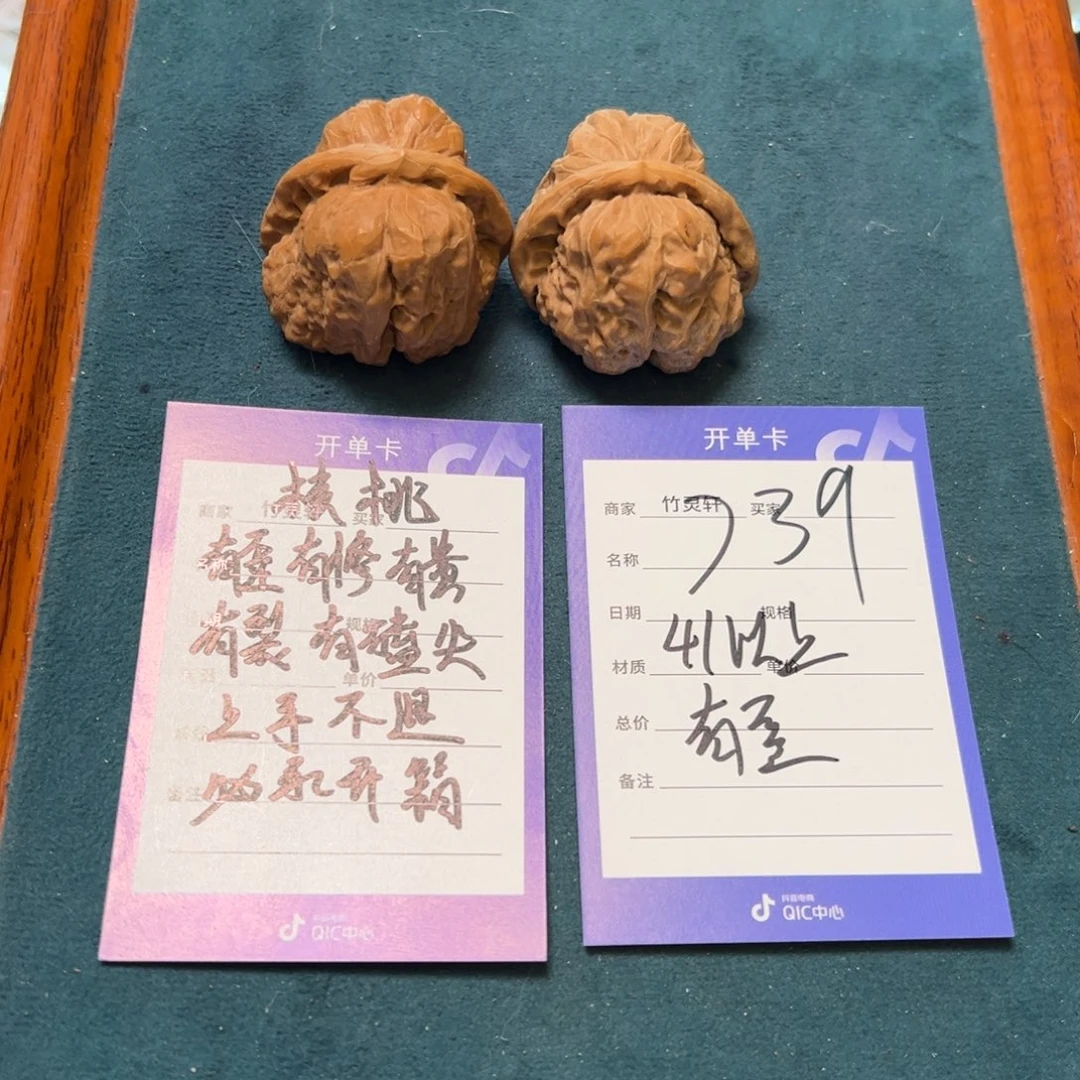 开单卡
核桃
商家 竹灵轩 买家
名称
有歪 有修 有黄
规格
有裂 有磕尖
单价
上手不退
备注
开箱
抖音电商
QIC中心
开单卡
商家 竹灵轩 买家
739
名称
日期 规格
41以上
材质 单价
总价
有歪
备注
抖音电商
QIC中心